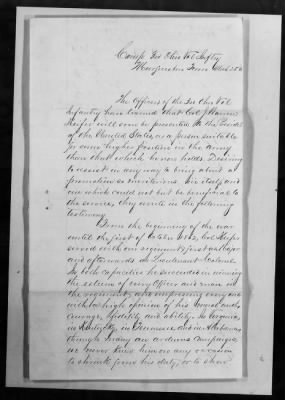 Camp 3rd Ohio Vol Infty
Murfreesboro Tenn
The Officers of the 3rd Ohio Vol
Infantry have learned that Col J Warren
Keifer will soon be presented to the
of the United States, as a person suitable
for some higher position in the Army
than that which he now holds. Desiring
to assist in any way to bring about a
promotion so meritorious in itself and
one which could not but be beneficial to
the service, they write in the following
testimony.
From the beginning of the war
until the first of October 1862, Col Keifer
served with our regiment, first as Major
and afterwards as Lieutenant Colonel
In both capacities he succeeded in winning
the esteem of every Officer and man in
the regiment, and impressing every one
with a high opinion of his
courage, fidelity and ability. In Virginia,
in Kentucky, in Tennessee and in Alabama
through many an arduous campaign
we never knew him on any occasion
to shrink from his duty, or to show